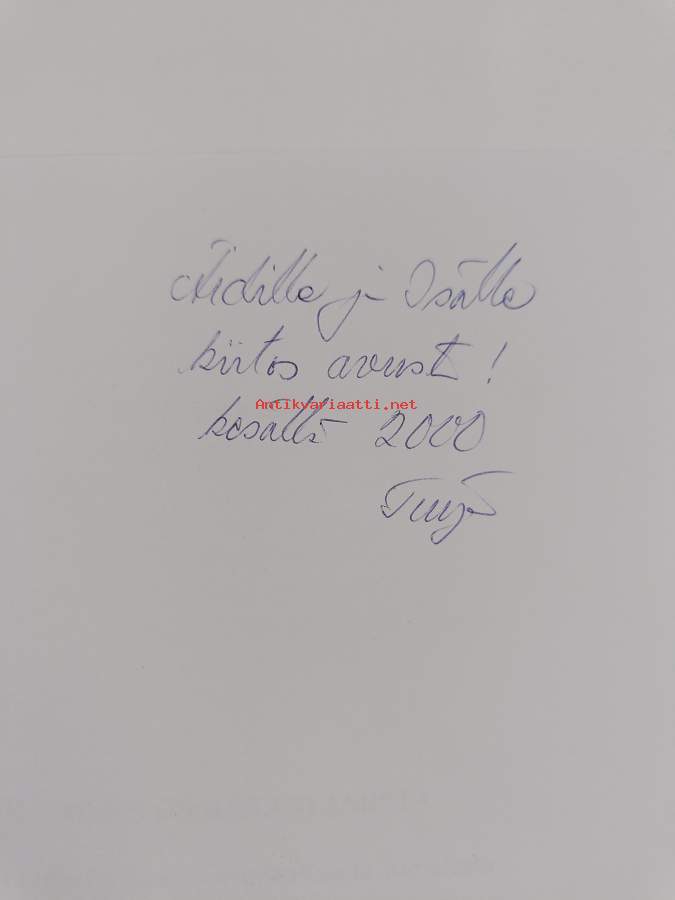 Äidille ja Isälle
kiitos avusta!
Antikvariaatti.net
kesällä 2000